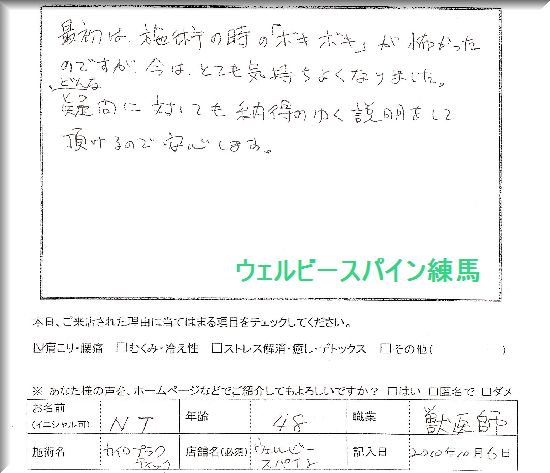 最初は、施術の時の「ボキボキ」が怖かった
のですが、今は、とても気持ちよくなりました。
どんな
疑問に対しても納得のゆく説明をして
頂けるので安心します。
ウェルビースパイン練馬
本日、ご来店された理由は当てはまる項目をチェックしてください。
☑肩こり・腰痛 □むくみ・冷え性 □ストレス解消・癒し・デトックス □その他( )
※ あなた様の声を、ホームページなどでご紹介してもよろしいですか? □はい □匿名で □ダメ
お名前 (イニシャル可) NT 年齢 48 職業 獣医師
施術名 カイロプラクティック 店舗名(必須) ウェルビースパイン 記入日 2010年10月6日